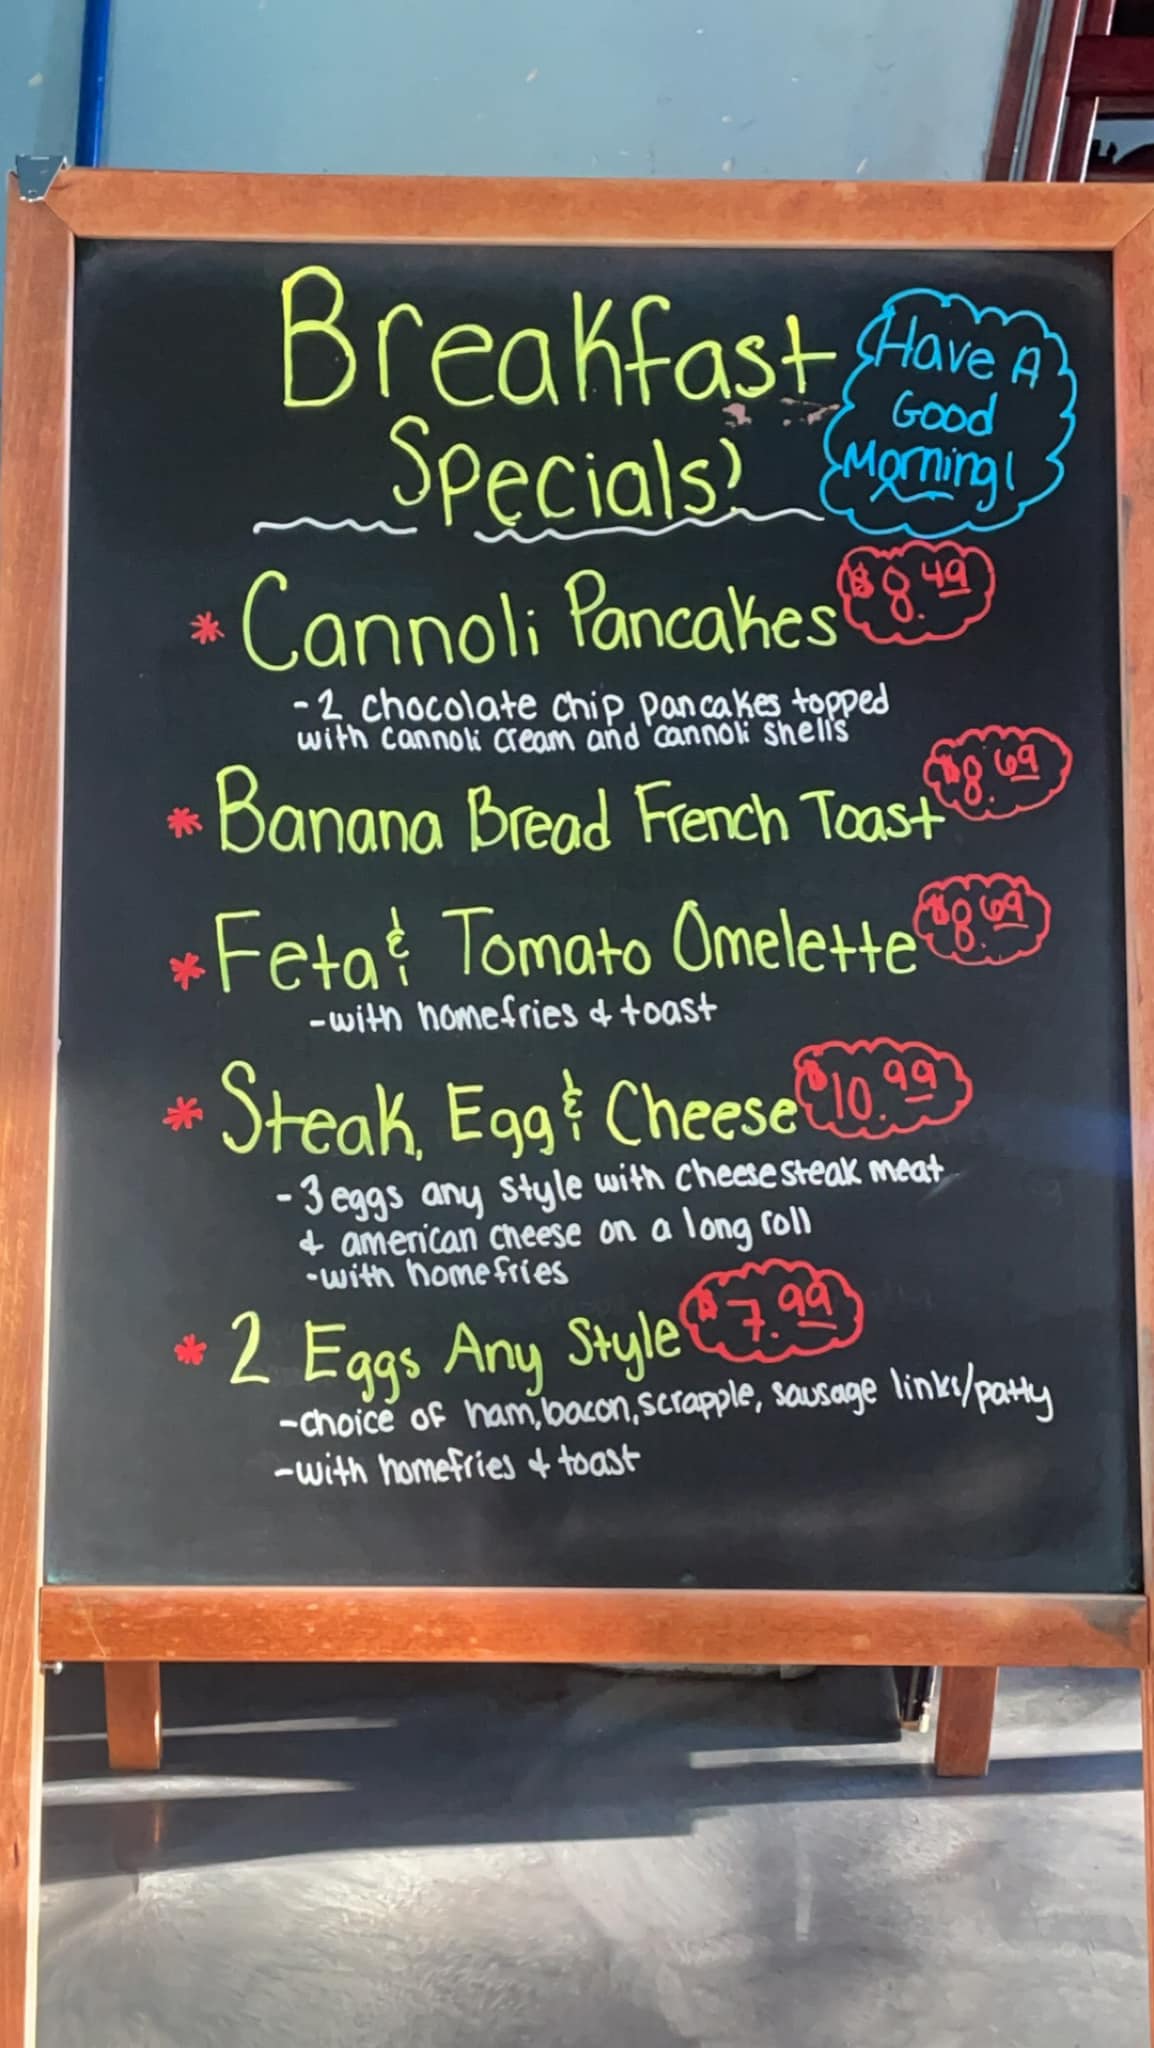 Breakfast
Specials!
Have A
Good
Morning!
* Cannoli Pancakes $8.49
-2 chocolate chip pancakes topped
with cannoli cream and cannoli shells
* Banana Bread French Toast $8.69
* Feta & Tomato Omelette $8.69
-with homefries & toast
* Steak, Egg & Cheese $10.99
-3 eggs any style with cheesesteak meat
& american cheese on a long roll
-with homefries
* 2 Eggs Any Style $7.99
-choice of ham, bacon, scrapple, sausage links/patty
-with homefries & toast